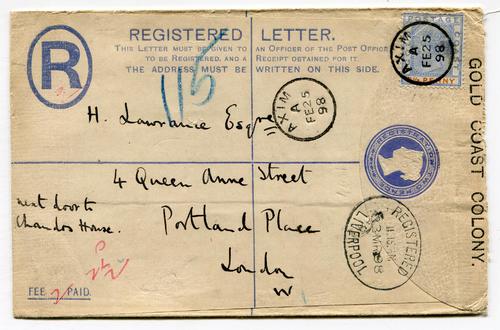 REGISTERED LETTER.
THIS LETTER MUST BE GIVEN TO AN OFFICER OF THE POST OFFICE
TO BE REGISTERED, AND A RECEIPT OBTAINED FOR IT.
THE ADDRESS MUST BE WRITTEN ON THIS SIDE.
R
115
POSTAGE
PENNY
AXIM
A
FE 25
98
AXIM
A
FE 25
98
H. Lawrance Esqre
4 Queen Anne Street
next door to
Chandos House.
Portland Place
London
W
REGISTRATION TWO PENCE
REGISTERED
LIVERPOOL
GOLD COAST COLONY.
FEE PAID.